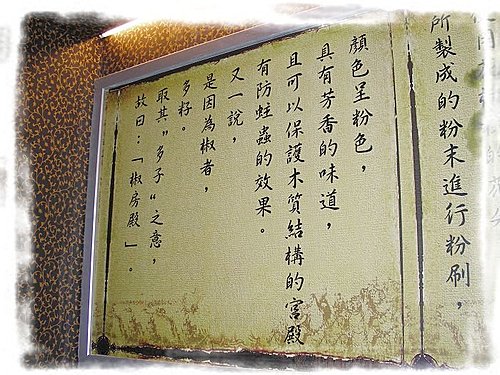 所製成的粉末進行粉刷，
顏色呈粉色，
具有芳香的味道，
且可以保護木質結構的宮殿
有防蛀蟲的效果。
又一說，
是因為椒者，
多籽。
取其"多子"之意，
故曰：「椒房殿」。